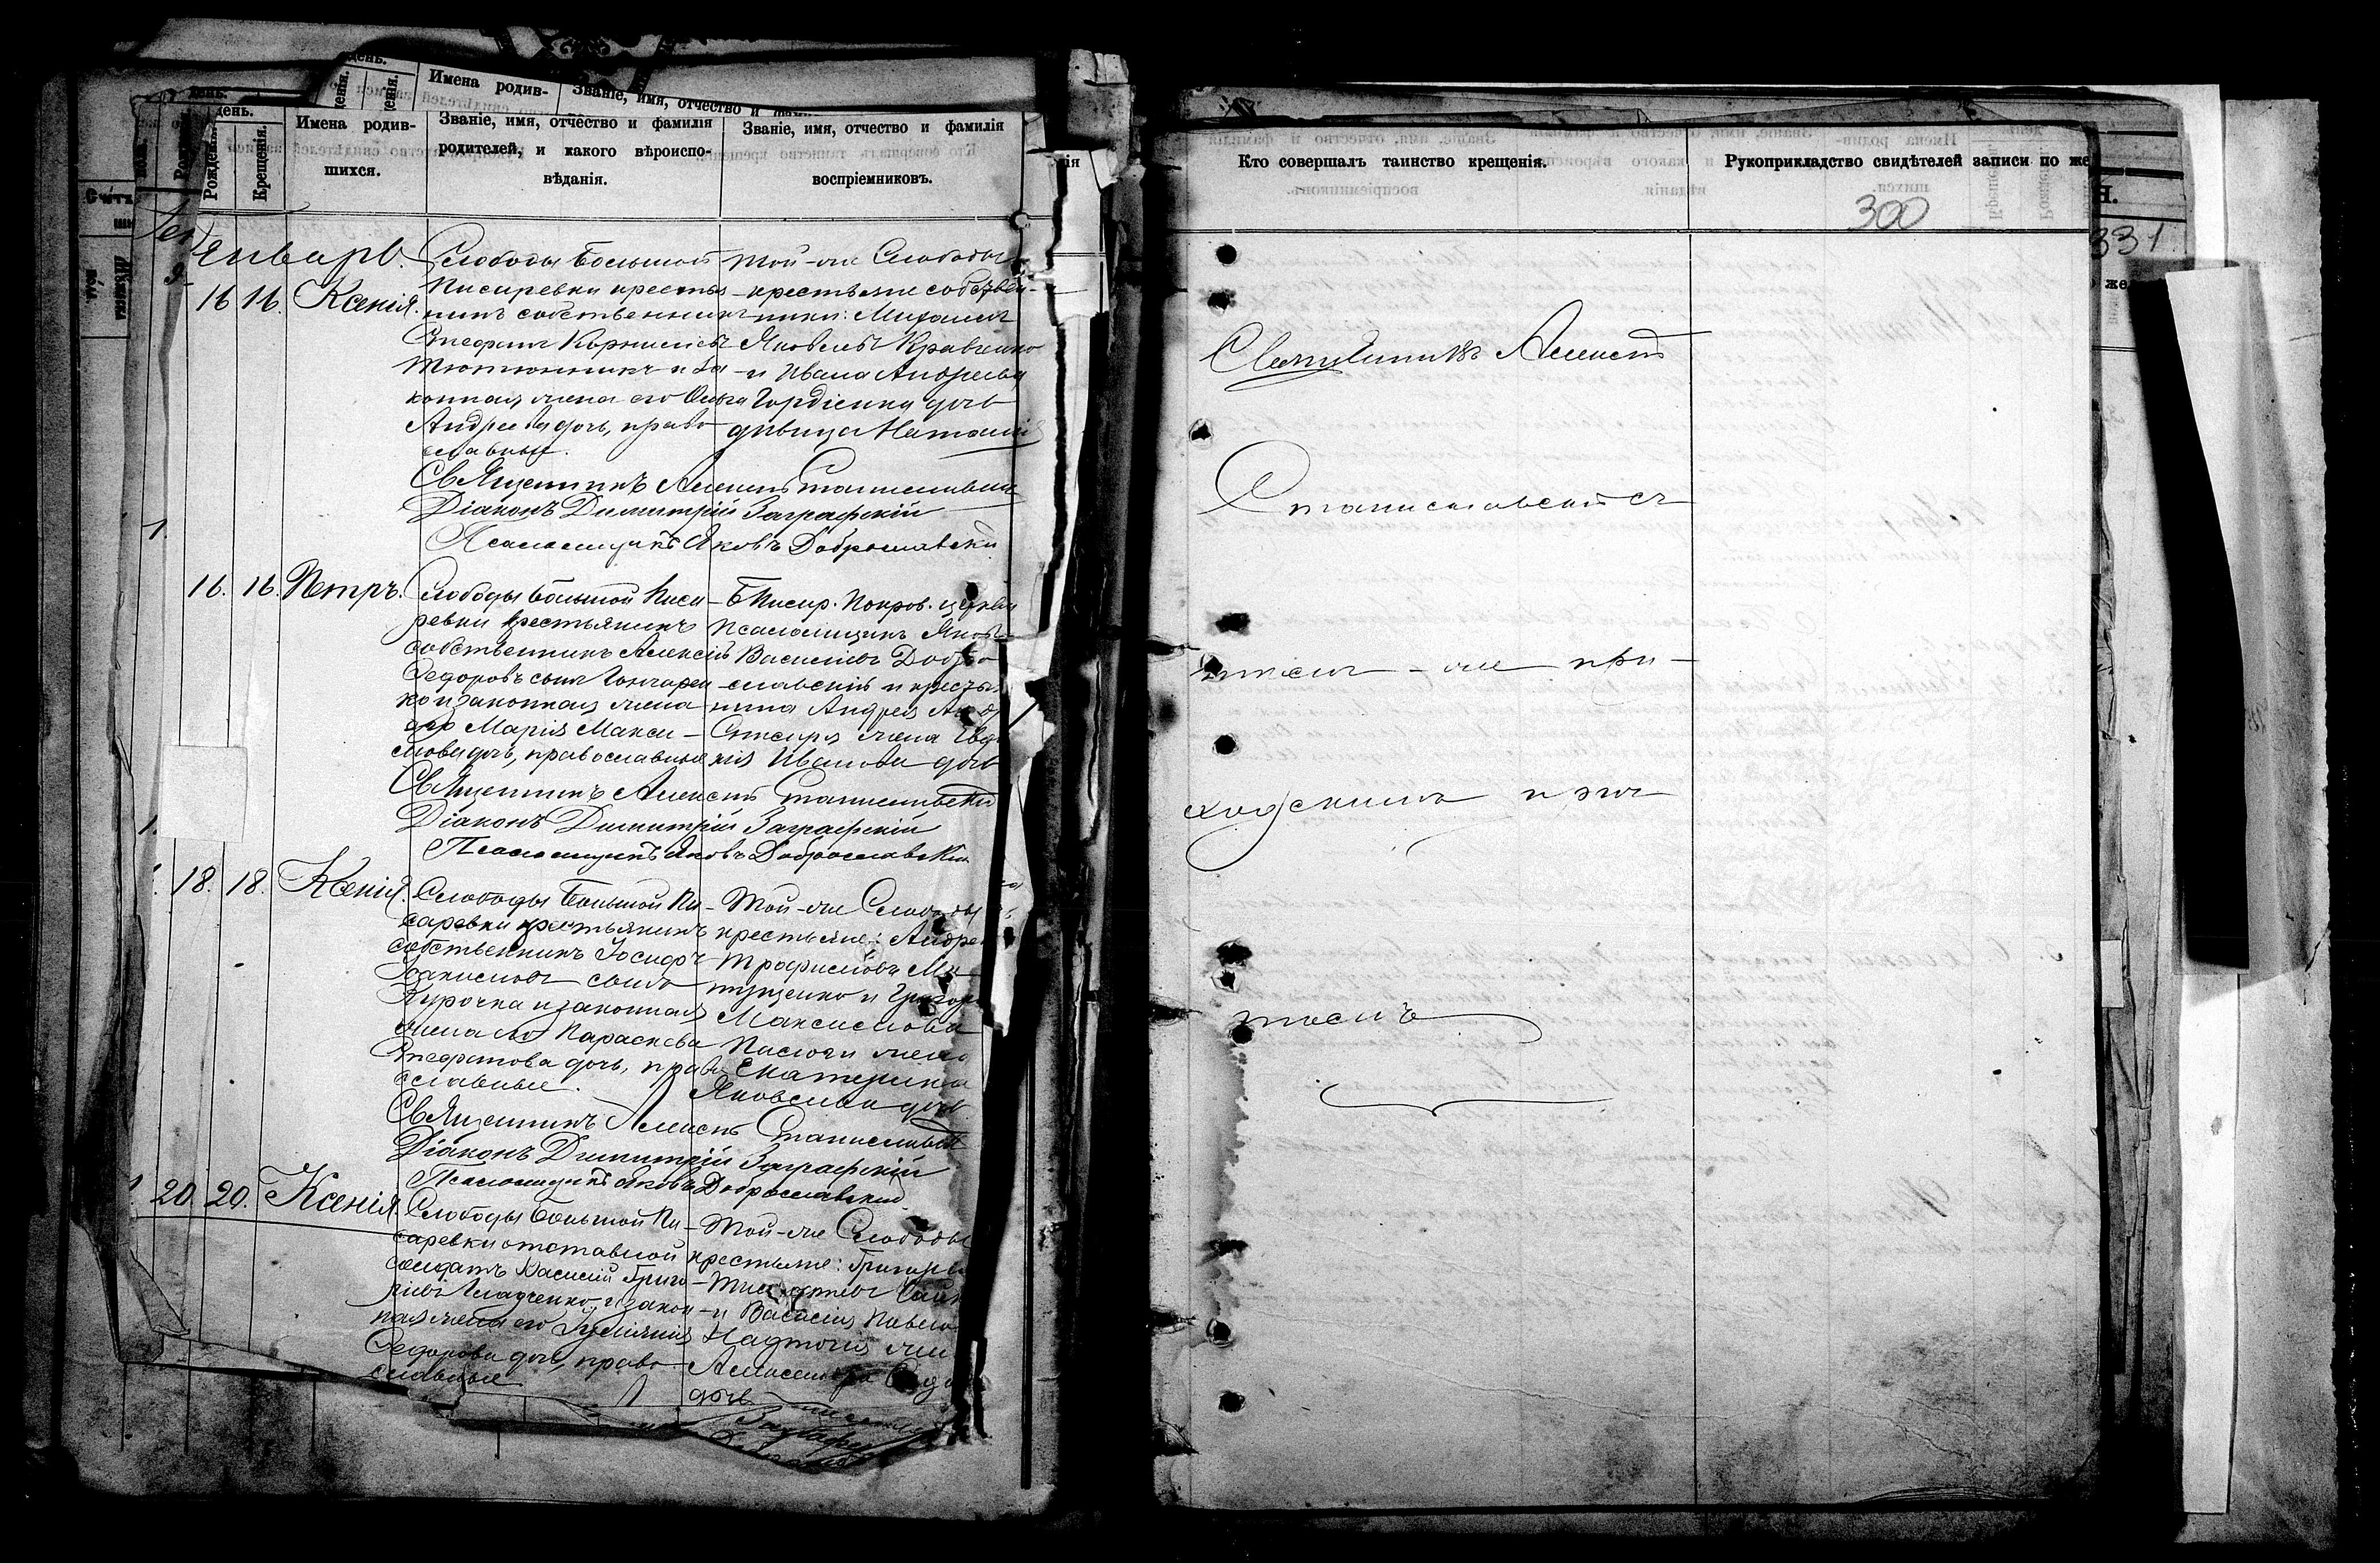 день.
Имена родив-
Званіе, имя, отчество и
день.
Рожденія.
Крещенія.
Имена родив-
шихся.
Званіе, имя, отчество и фамилія
родителей, и какого вѣроиспо-
вѣданія.
Званіе, имя, отчество и фамилія
воспріемниковъ.
Январь.
16 16. Ксенія.
Слободы Большой
Писаревки крестья-
нинъ собственникъ
Стефанъ Корниліевъ
Тютюнникъ и за-
конная жена его Ольга
Андреева дочь, право-
славные.
Той-же Слободы
крестьяне собствен-
ники: Михаилъ
Яковлевъ Кравченко
и Ивана Андреева
Гордіенка дочь
дѣвица Наталія
Священникъ Алексій Станиславскій
Діаконъ Димитрій Заграфскій
Псаломщикъ Яковъ Доброславскій
16. 16. Петръ.
Слободы Большой Писа-
ревки крестьянинъ
собственникъ Алексій
Федоровъ сынъ Гончарен-
ко и законная жена
его Марія Макси-
мова дочь, православные
Б. Писар. Покров. церкви
Псаломщикъ Яковъ
Василіевъ Добро-
славскій и крестья-
нина Андрея
жена
Иванова дочь
Священникъ Алексій Станиславскій
Діаконъ Димитрій Заграфскій
Псаломщикъ Яковъ Доброславскій
18. 18. Ксенія.
Слободы Большой Пи-
саревки крестьянинъ
собственникъ Іосифъ
сынъ
Курочка и законная
жена его Параскева
Стефанова дочь, право-
славные.
Той-же Слободы
крестьяне: Андрей
Трофимовъ Ма-
тущенко и Григорія
Максимова
жена
Екатерина
Яковлева дочь.
Священникъ Алексій Станиславскій
Діаконъ Димитрій Заграфскій
Псаломщикъ Яковъ Доброславскій
20. 20. Ксенія.
Слободы Большой Пи-
саревки отставной
солдатъ Василій Григо-
ріевъ Гладченко и закон-
ная жена его Іуліанія
Федорова дочь, право-
славные
Той-же Слободы
крестьяне: Григорій
и Василія Павлова
Надточія
дочь
Кто совершалъ таинство крещенія.
Рукоприкладство свидѣтелей записи по же
300
331
Священникъ Алексій
Станиславскій съ
тѣмъ-же при-
ходскимъ прич-
томъ